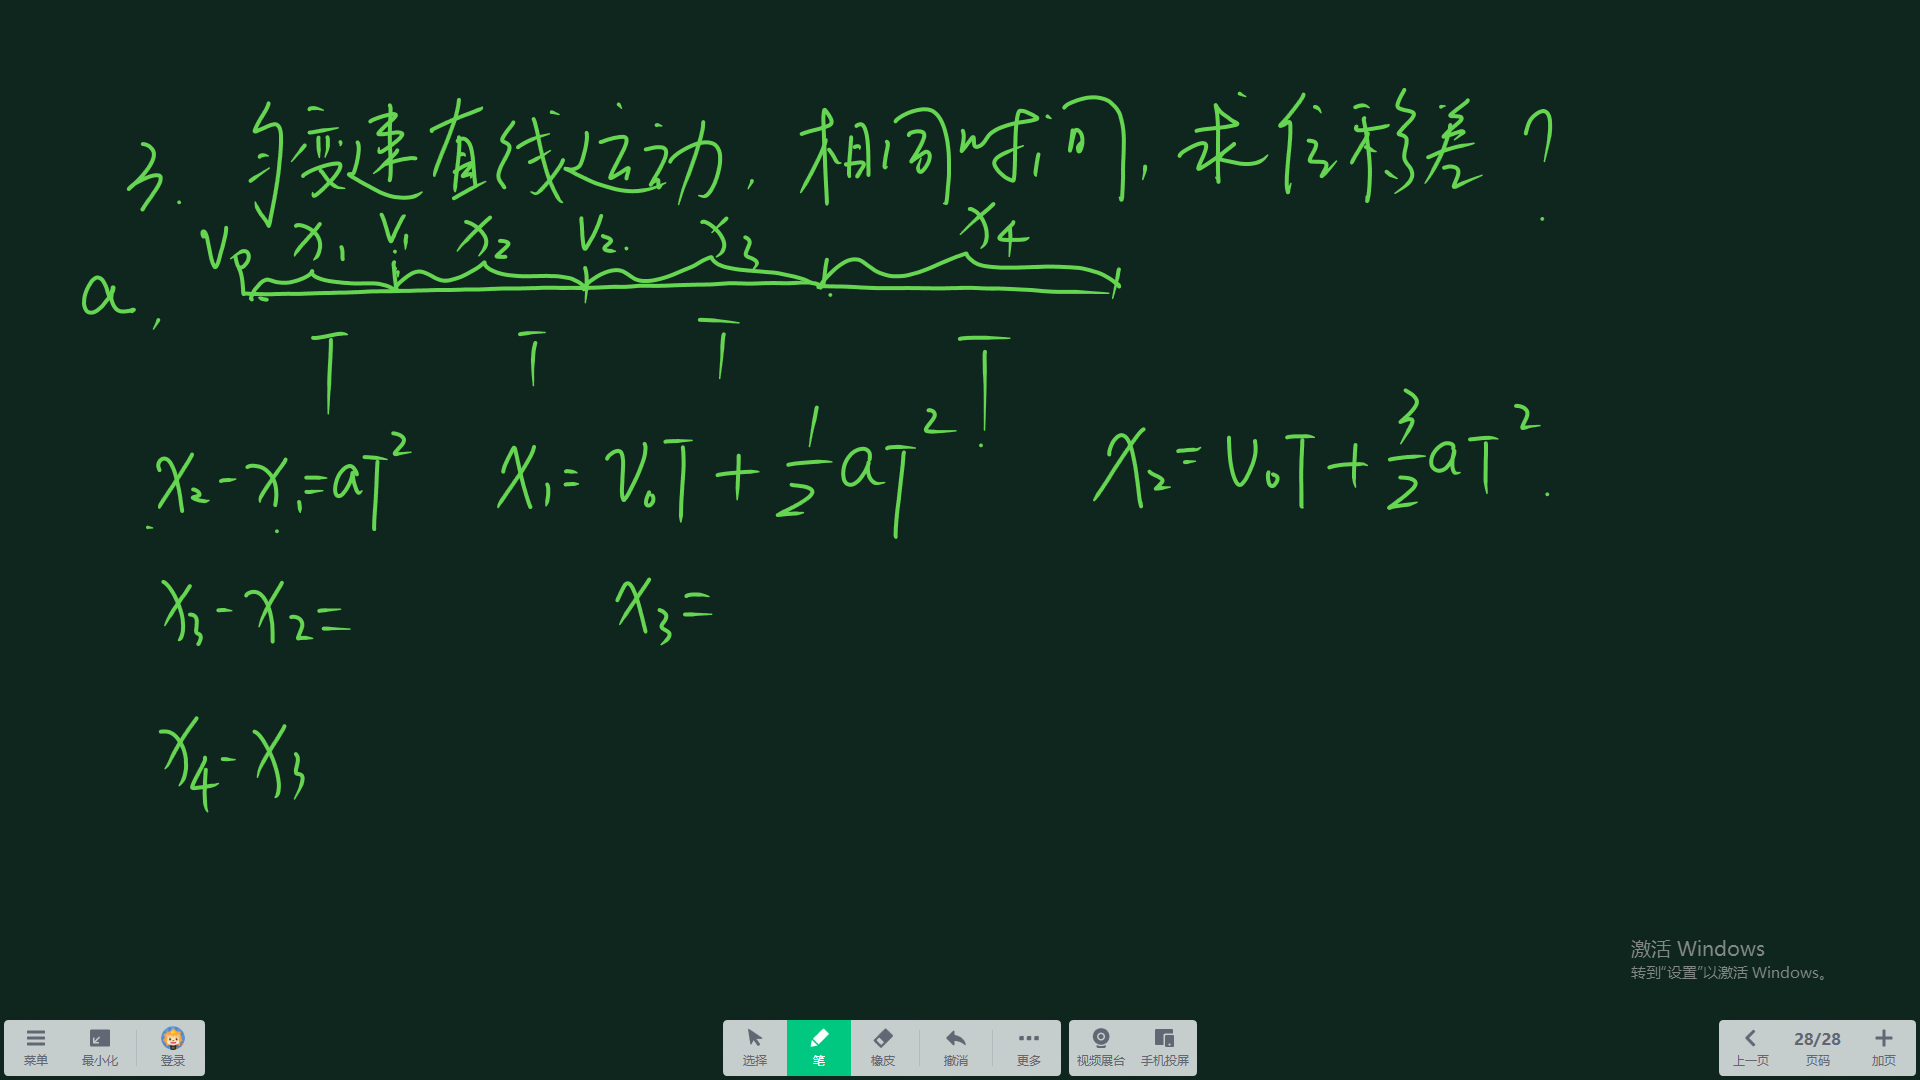 3. 匀变速直线运动, 相同时间, 求位移差?
a, V₀ x₁ V₁ x₂ V₂ x₃ x₄
T T T T
x₂-x₁=aT² x₁=V₀T+½aT² x₂=V₀T+3/2aT²
x₃-x₂= x₃=
x₄-x₃
激活 Windows
转到“设置”以激活 Windows。
菜单 最小化 登录 选择 笔 橡皮 撤消 更多 视频展台 手机投屏 上一页 28/28 页码 加页